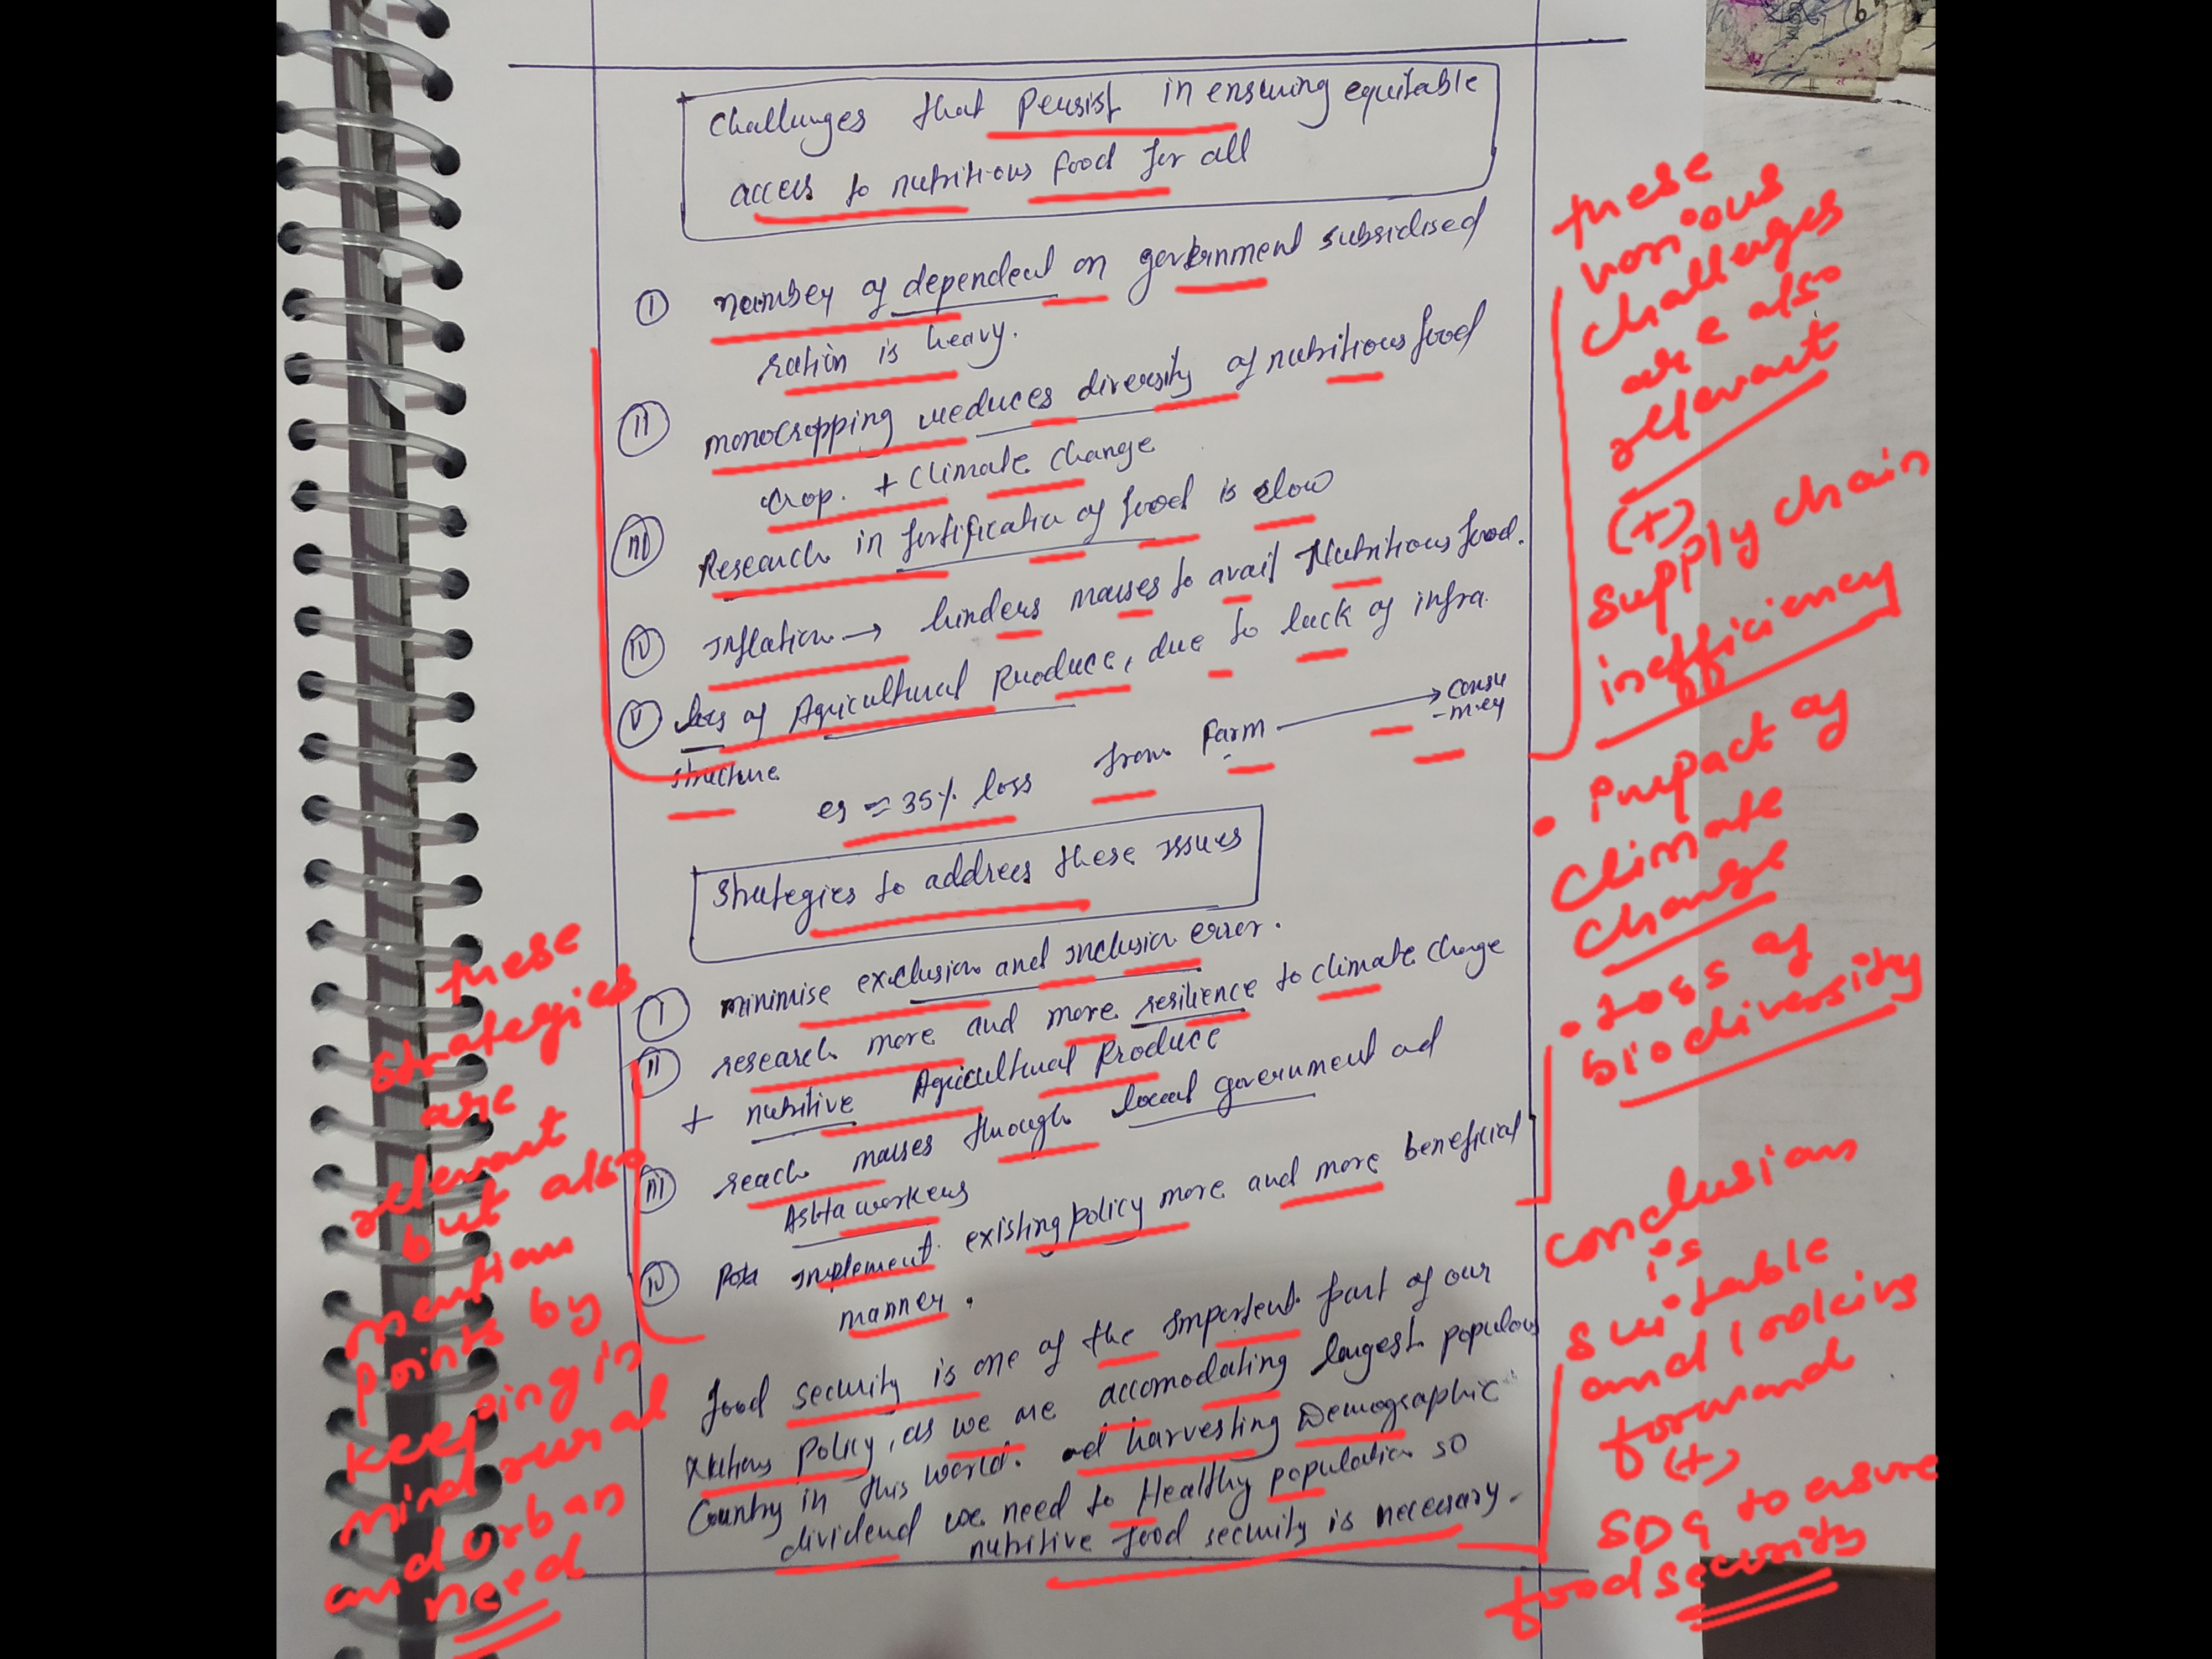 Challenges that Persist in ensuring equitable
access to nutritious food for all
(I) number of dependent on government subsidised
ration is heavy.
(II) monocropping reduces diversity of nutritious food
crop. + Climate change
(III) Research in fortification of food is slow
(IV) Inflation → hinders masses to avail Nutritious food.
(V) loss of Agricultural Produce, due to lack of infra
structure
eg ≈ 35% loss from Farm → Consu
-mer
Strategies to address these issues
(I) minimise exclusion and inclusion error.
(II) research more and more resilience to climate change
+ nutritive Agricultural Produce
(III) reach masses through local government ad
ASHA workers
(IV) implement existing policy more and more beneficial
manner.
Food security is one of the Important part of our
Nations Policy, as we are accomodating largest populous
Country in this world. and harvesting Demographic
dividend we need to Healthy population so
nutritive food security is necessary.
these
various
challenges
are also
relevant
(+)
supply chain
inefficiency
• Impact of
Climate
Change
• Loss of
biodiversity
these
strategies
are
relevant
but also
mention
points by
keeping in
mind rural
and urban
need
conclusion
is
suitable
and looking
forward
(+)
SDG to ensure
food security